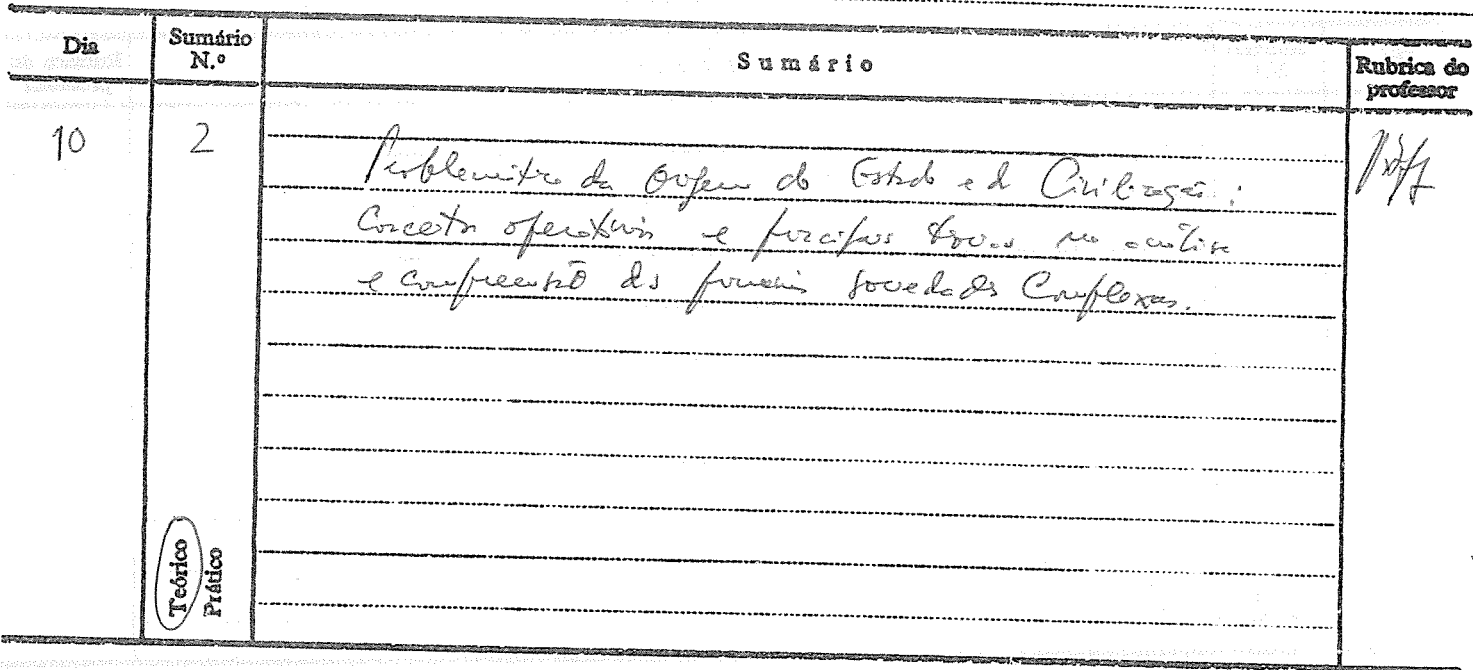 Dia
Sumário N.º
Sumário
Rubrica do professor
10
2
Problemática da Origem do Estado e da Civilização:
Conceitos operatórios e principais na análise
e compreensão das primeiras sociedades Complexas.
Teórico
Prático